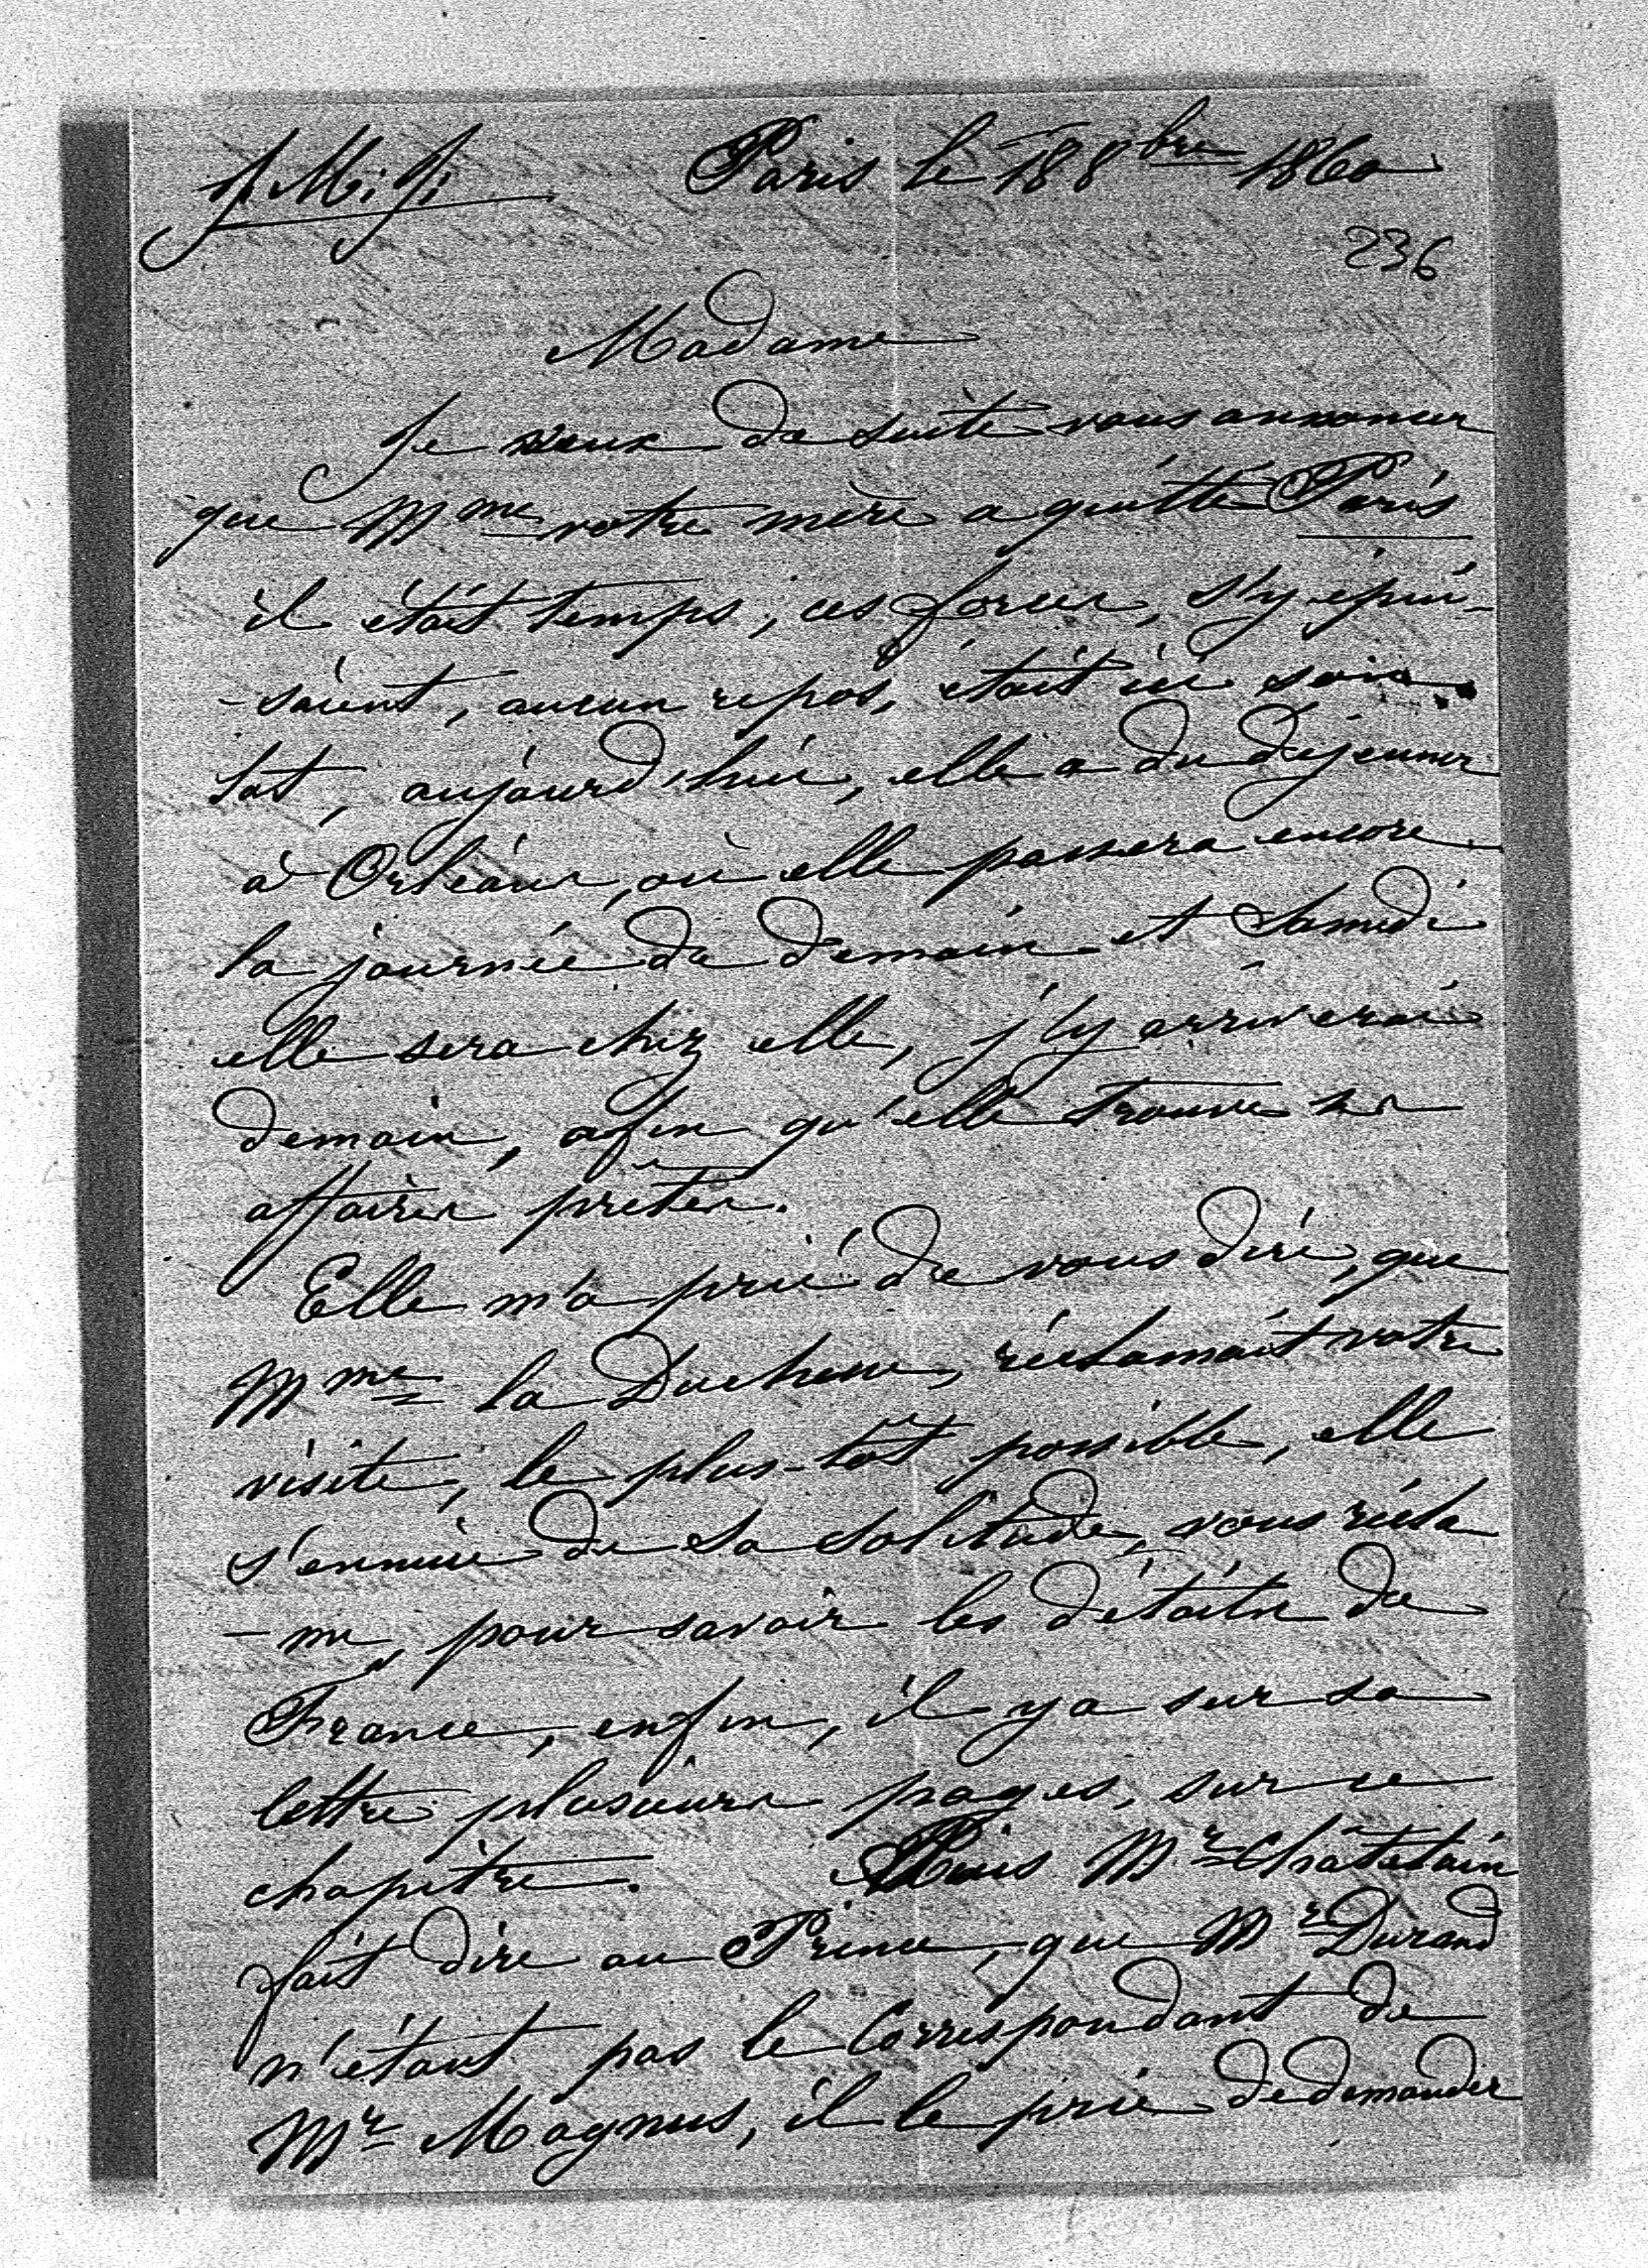 J. M. J. Paris le 18 8bre 1860
236
Madame
Je veux de suite vous annoncer
que Mme votre mère a quitté Paris
il était temps, ces forces, s'y épui-
-saient, aucun repos, était ici son
lot, aujourd'hui, elle a du déjeuner
à Orléans, où elle passera encore
la journée de demain et Samedi
elle sera chez elle, j'y arriverai
demain, afin qu'elle trouve ses
affaires prêtes.
Elle m'a prié de vous dire, que
Mme la Duchesse, réclamait votre
visite, le plus-tôt possible, elle
s'ennuie de sa solitude, vous récla
-me, pour savoir les détails de
France, enfin, il y a sur sa
lettre plusieurs pages, sur ce
chapitre. Puis Mr Châtelain
fait dire au Prince, que Mr Durand
n'étant pas le Correspondant de
Mr Magnus, il le prie de demander